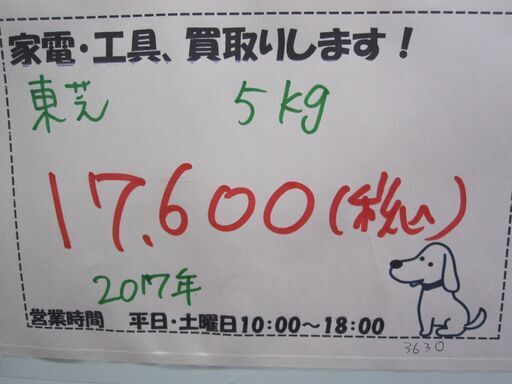 家電・工具、買取りします！
東芝 5kg
17,600(税込)
2017年
営業時間 平日・土曜日10:00～18:00
3630